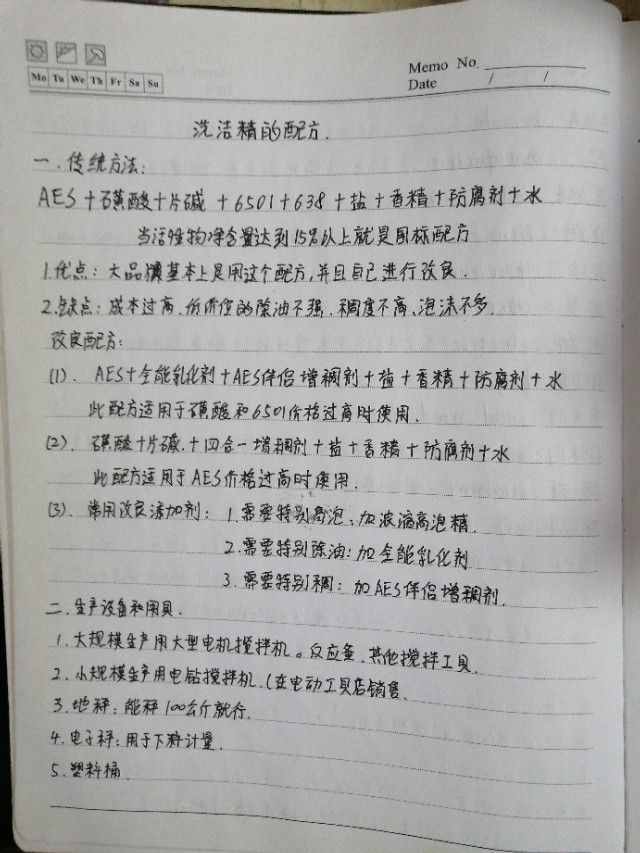 Mo Tu We Th Fr Sa Su
Memo No.
Date / /
洗洁精的配方.
一.传统方法:
AES+磺酸+片碱+6501+638+盐+香精+防腐剂+水
当活性物净含量达到15%以上就是国标配方
1.优点:大品牌基本上是用这个配方,并且自己进行改良.
2.缺点:成本过高.价值的除油不强.稠度不高、泡沫不多.
改良配方:
(1). AES+全能乳化剂+AES伴侣增稠剂+盐+香精+防腐剂+水
此配方适用于磺酸和6501价格过高时使用.
(2). 磺酸+片碱.+四合一增稠剂+盐+香精+防腐剂+水
此配方适用于AES价格过高时使用.
(3). 常用改良添加剂: 1.需要特别高泡:加浓缩高泡精.
2.需要特别除油:加全能乳化剂
3.需要特别稠:加AES伴侣增稠剂.
二.生产设备和用具.
1.大规模生产用大型电机搅拌机。反应釜.其他搅拌工具.
2.小规模生产用电钻搅拌机.(在电动工具店销售.
3.地秤:能秤100公斤就行.
4.电子秤:用于下料计量.
5.塑料桶.